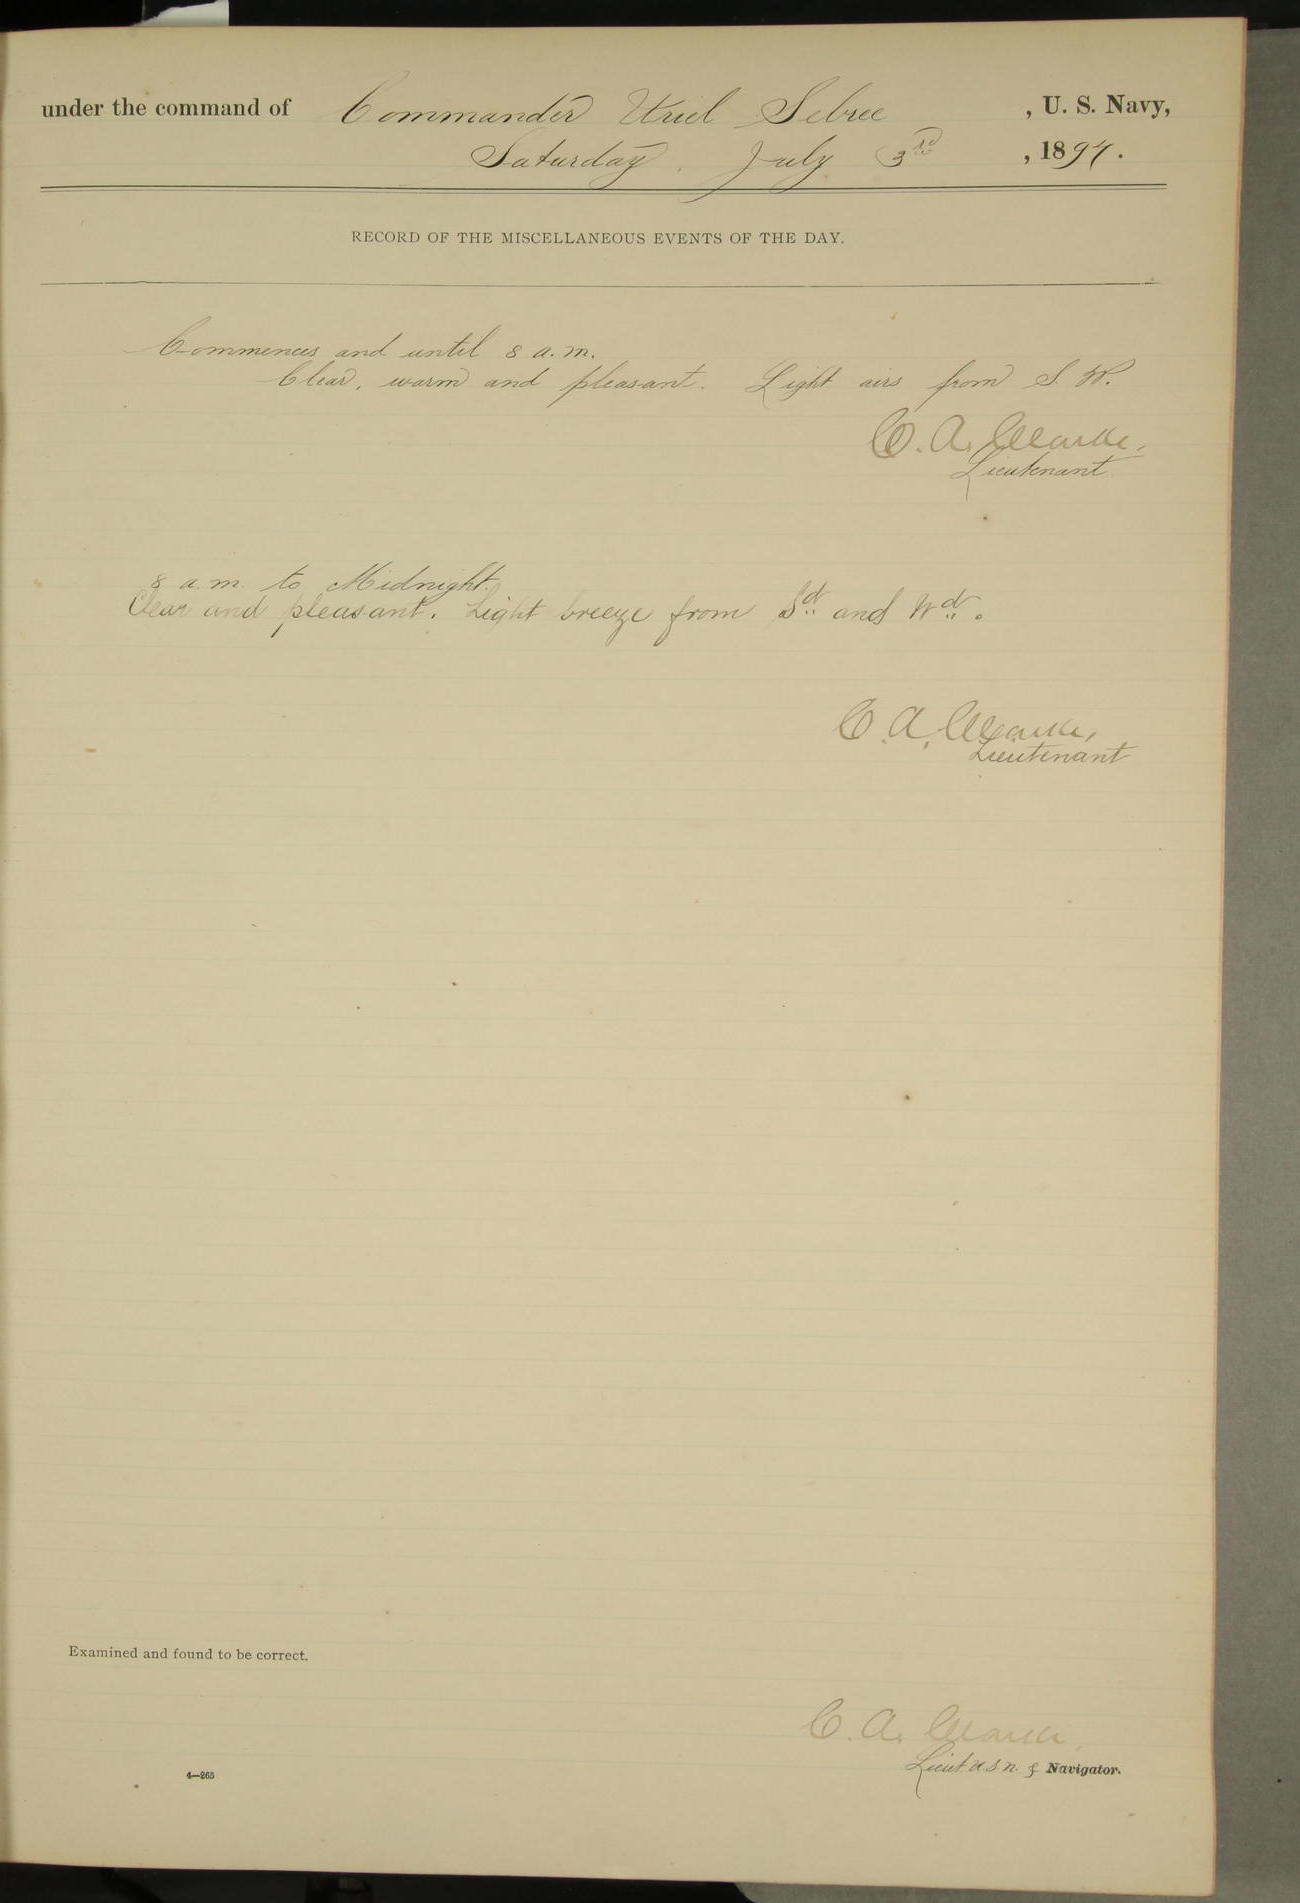 under the command of Commander Uriel Sebree, U. S. Navy,
Saturday, July 3rd, 1897.
RECORD OF THE MISCELLANEOUS EVENTS OF THE DAY.
Commences and until 8 a.m.
Clear, warm and pleasant. Light airs from S. W.
C. A. Clarke,
Lieutenant
8 a.m. to Midnight.
Clear and pleasant. Light breeze from Sd and Wd.
C. A. Clarke,
Lieutenant
Examined and found to be correct.
C. A. Clarke,
Lieut. U.S.N. & Navigator.
4—265